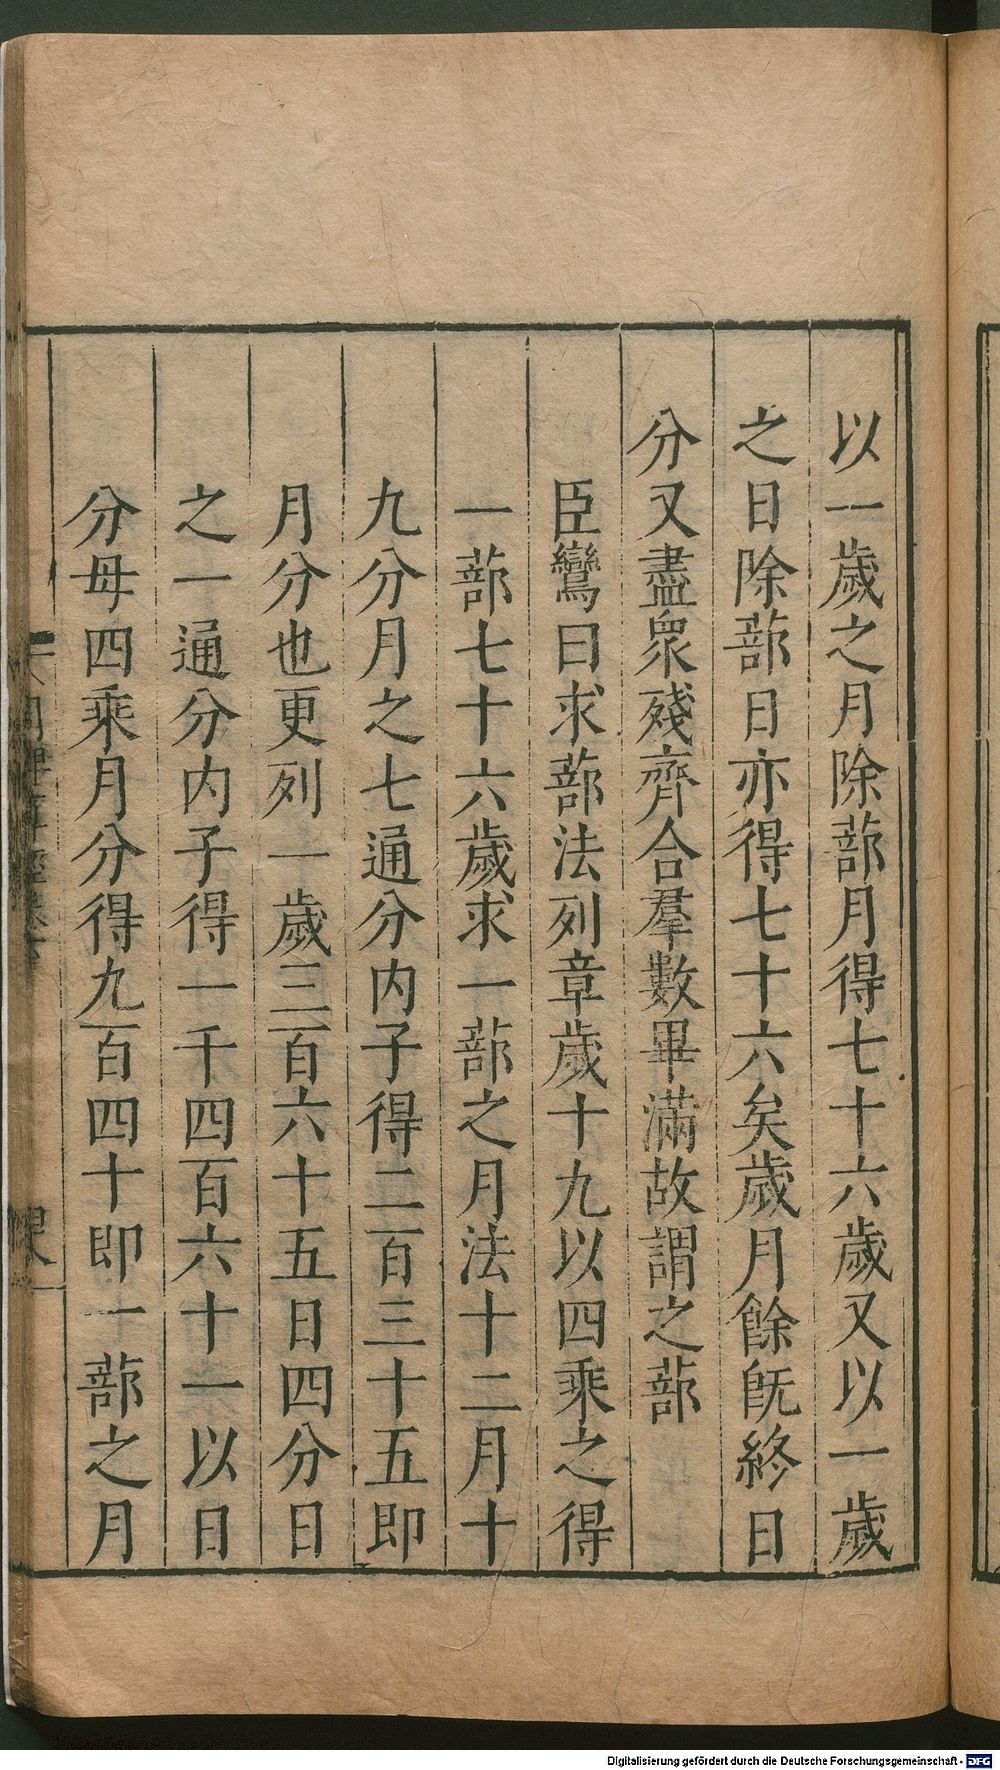 以一歲之月除蔀月得七十六歲又以一歲
之日除蔀日亦得七十六矣歲月餘旣終日
分又盡衆殘齊合羣數畢滿故謂之蔀
臣鸞曰求蔀法列章歲十九以四乘之得
一蔀七十六歲求一蔀之月法十二月十
九分月之七通分内子得二百三十五即
月分也更列一歲三百六十五日四分日
之一通分内子得一千四百六十一以日
分母四乘月分得九百四十即一蔀之月
Digitalisierung gefördert durch die Deutsche Forschungsgemeinschaft - DFG